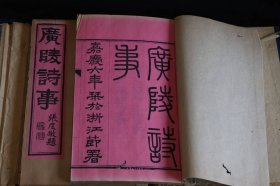 廣陵詩事
張度敬題
廣陵詩
事
嘉慶六年栞於浙江節署